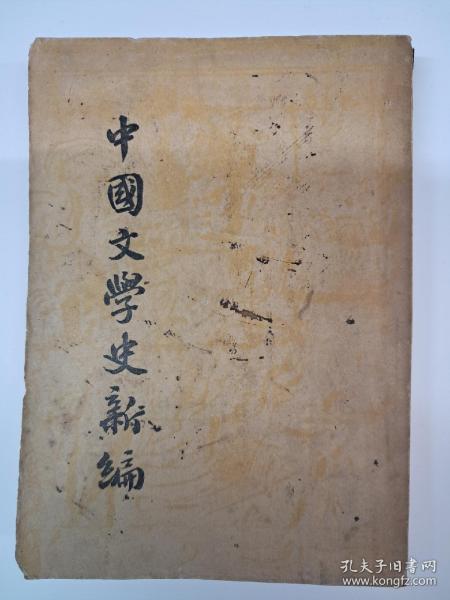 中國文學史新編
孔夫子旧书网
www.kongfz.com